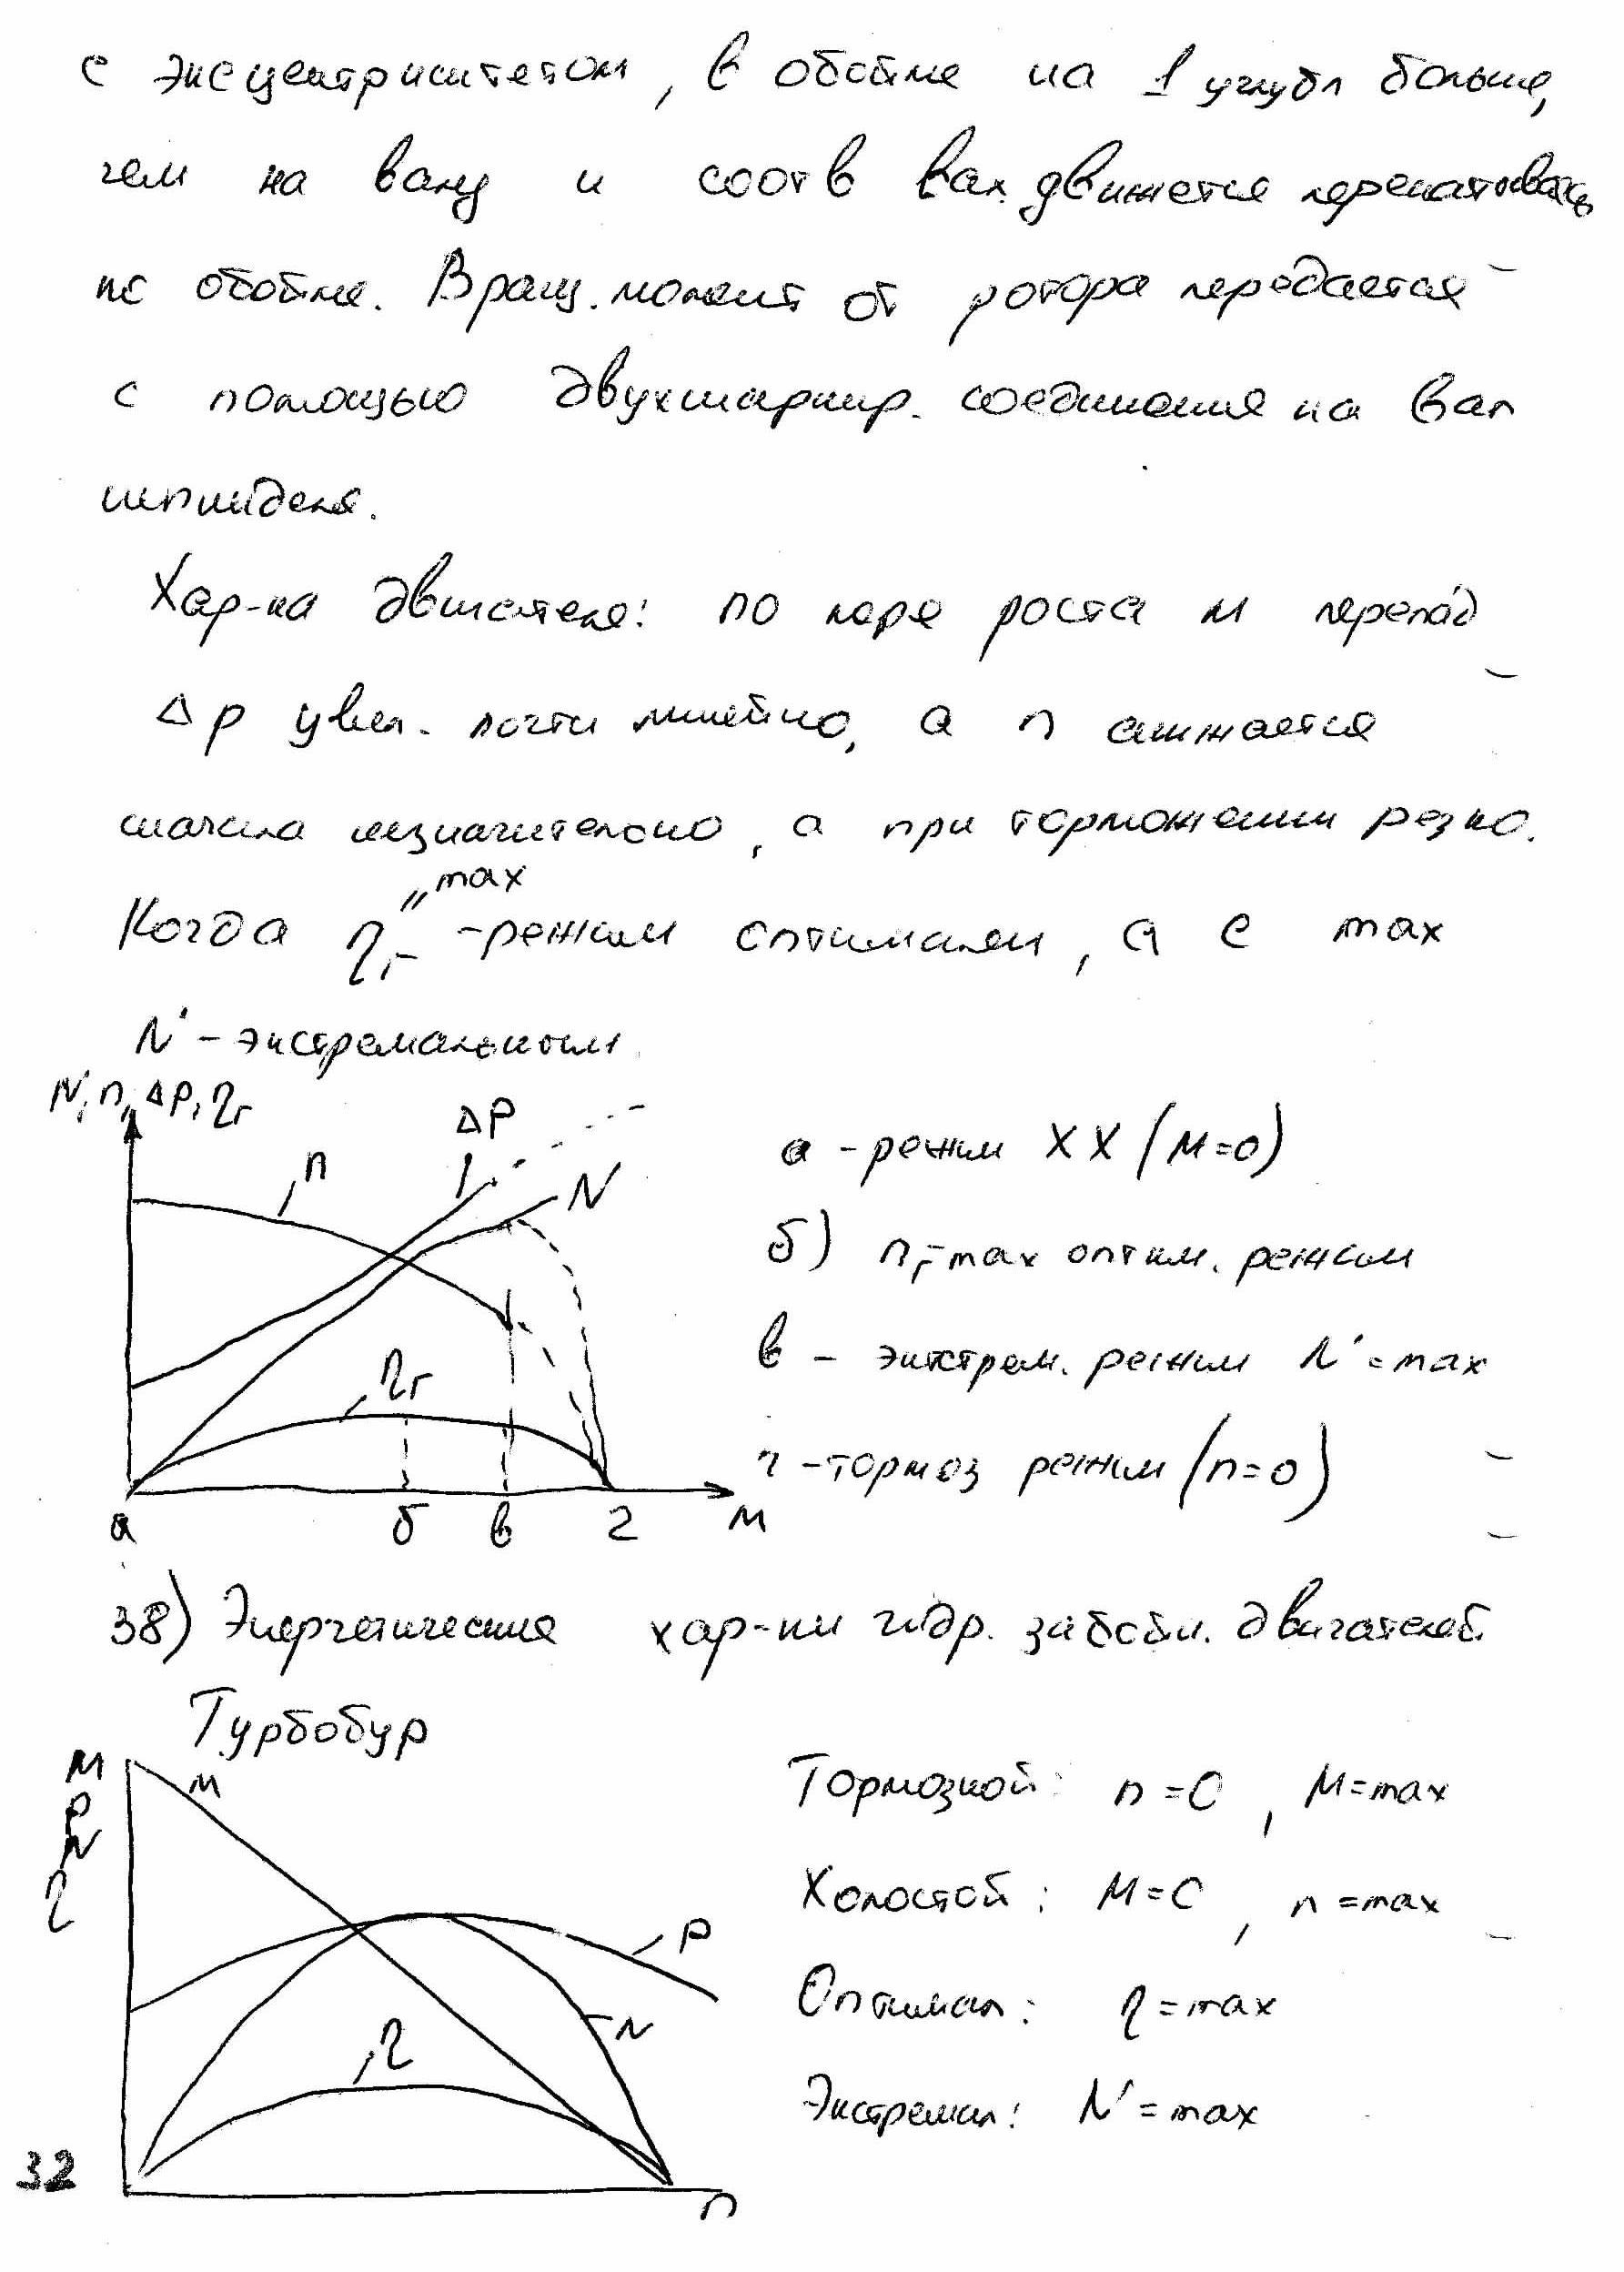 с эксцентриситетом, в обойме на 1 углубл больше,
чем на валу и соотв вал движется перекатываясь
по обойме. Вращ. момент от ротора передается
с помощью двухшарнир. соединения на вал
шпинделя.
Хар-ка двигателя: по мере роста М перепад
Δp увел. почти линейно, а n снижается
сначала незначительно, а при торможении резко.
Когда ηг "max - режим оптимален, а с max
N - экстремальным
N, n, ΔP, ηг
n
ΔP
N
ηг
а б в г M
а - режим ХХ (M=0)
б) ηг-max оптим. режим
в - экстрем. режим N=max
г - тормоз режим (n=0)
38) Энергетические хар-ки гидр. забойн. двигателей
Турбобур
M
P
N
η
M
P
N
η
n
Тормозной: n=0, M=max
Холостой: M=0, n=max
Оптимал: η=max
Экстремал: N=max
32